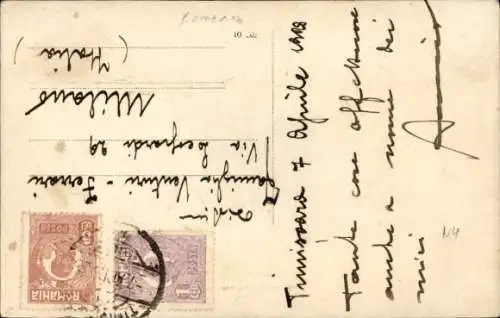 Romania
Timisoara 7 Aprile 1928
Tante cose affettuose
anche a nome dei
miei
Famiglia Venturi - Ferrari
Via Leopardi 29
Milano
(Italia)
ROMANIA
POSTA
1
POSTA
N4